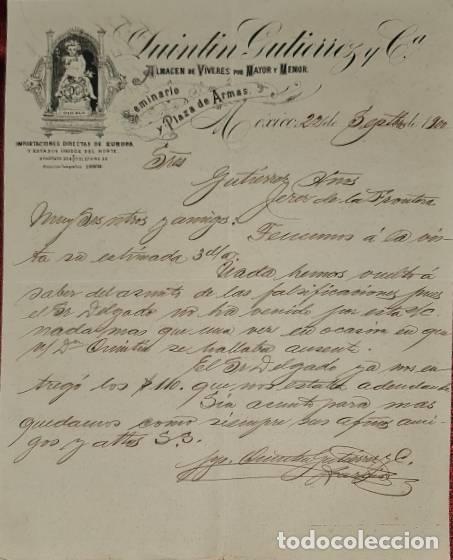 Quintin Gutierrez y Cª
ALMACEN DE VÍVERES POR MAYOR Y MENOR.
Seminario
y Plaza de Armas.
IMPORTACIONES DIRECTAS DE EUROPA
Y ESTADOS UNIDOS DEL NORTE.
Mexico, 22 de Septbre de 1900
Sres
Gutiérrez Hnos
Jerez de la Frontera
Muy Sres ntros y amigos:
Tenemos á la vis
ta su estimada 3 d/
Nada hemos vuelto á
saber del asunto de las falsificaciones pues
el Sr Delgado no ha venido por esta s/c
nada mas que una vez en ocasion en que
n/ Dn Quintin se hallaba ausente.
El Sr Delgado ya nos en
tregó los $110. que nos estaba adeudando
Sin asunto para mas
quedamos como siempre sus afmos ami
gos y attos S.S.
Quintin Gutierrez y C.
todocoleccion.net